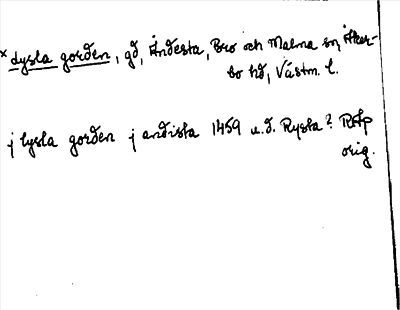 × dysla gorden, gd, Åndesta, Bro och Malma sn, Åker-
bo hd, Västm. l.
j lysla gorden j andista 1459 u.d. Rysta? RAp
orig.